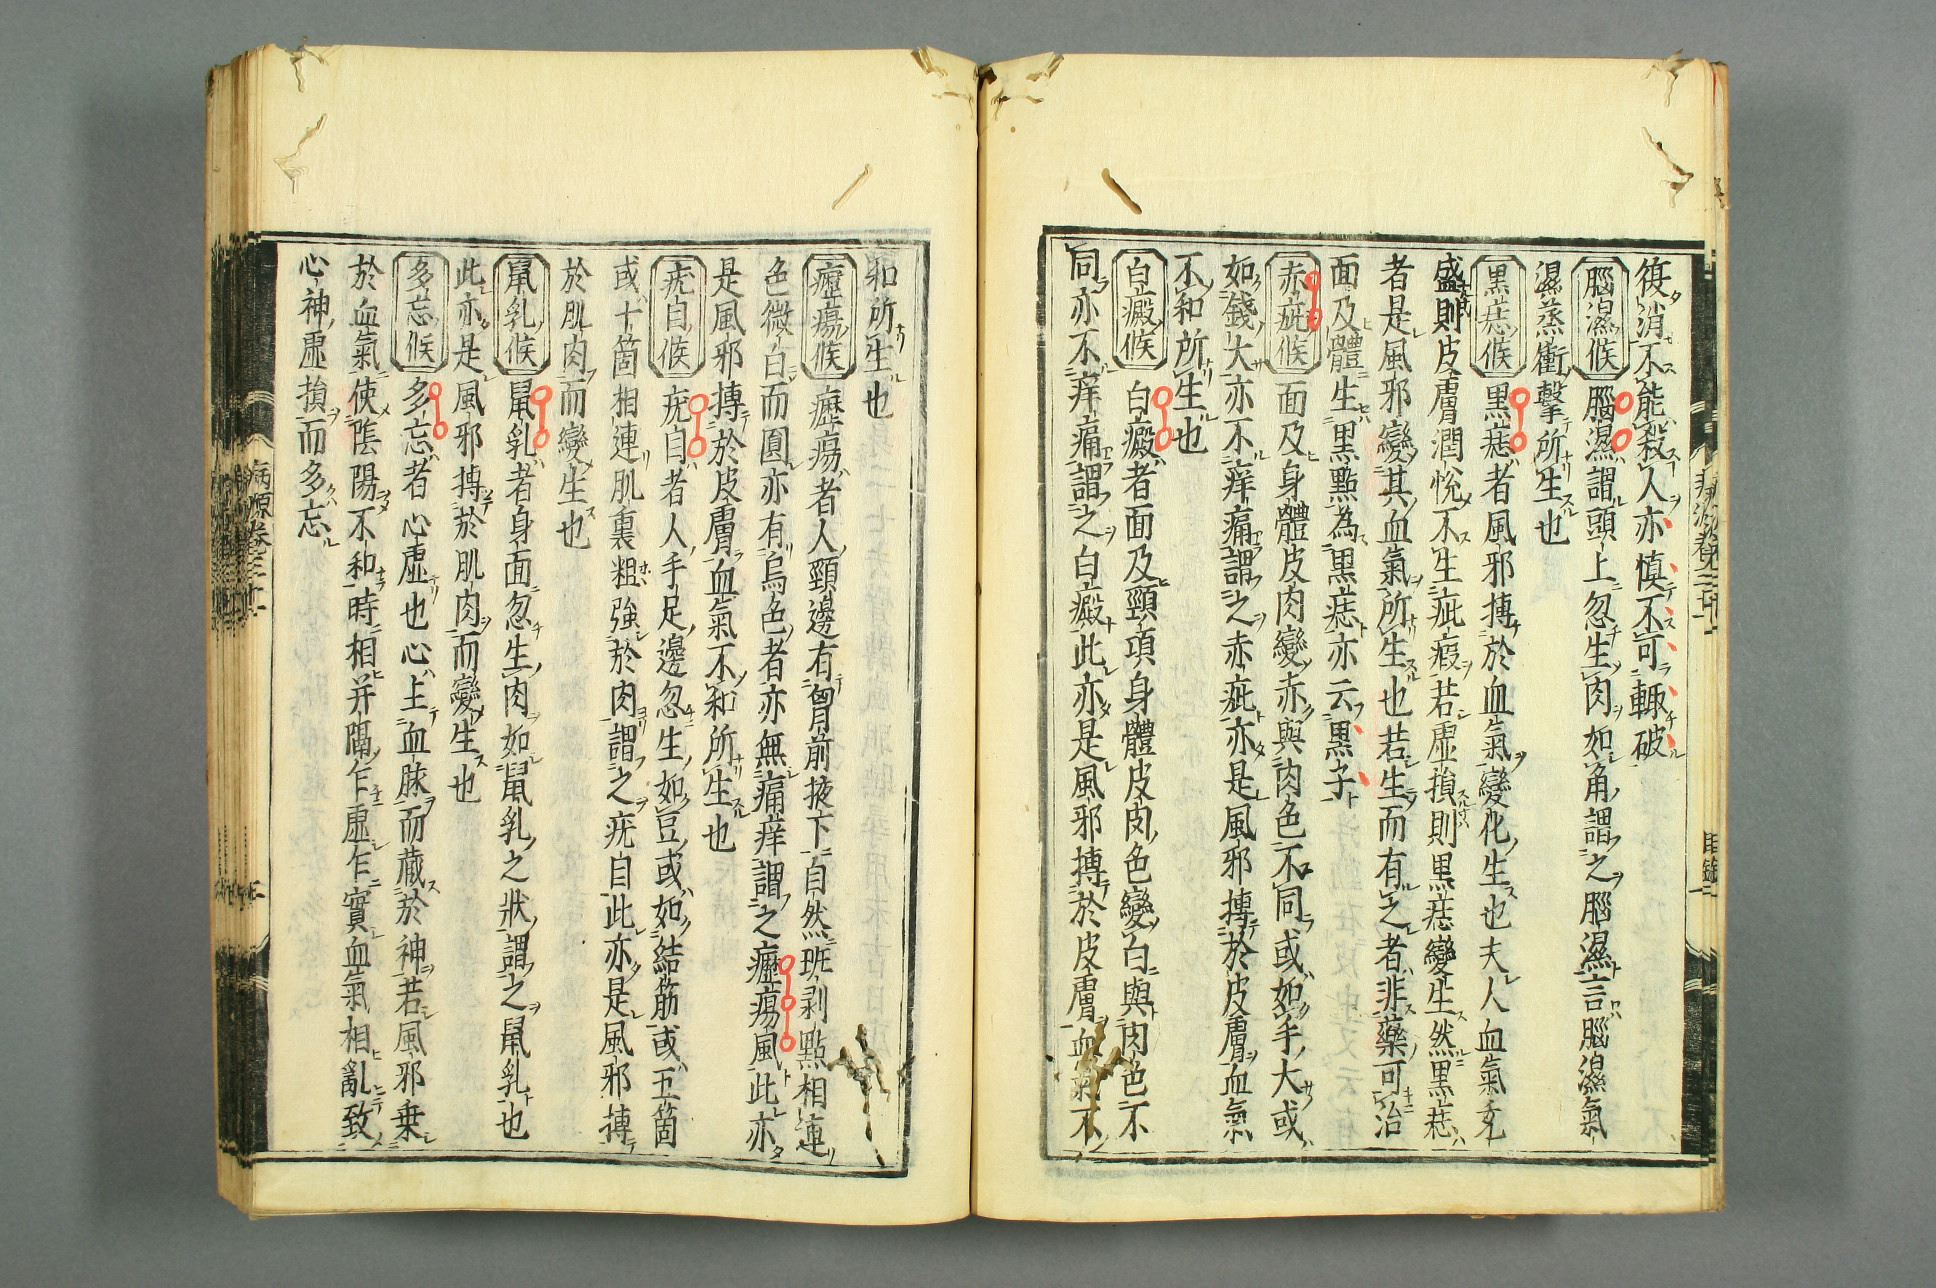 復消不能殺人亦愼不可輙破
腦濕候 腦濕謂頭上忽生肉如角謂之腦濕言腦濕氣
濕蒸衝擊所生也
黒痣候 黒痣者風邪搏於血氣變化生也夫人血氣充
盛則皮膚潤悅不生疵瘕若虛損則黒痣變生然黒痣
者是風邪變其血氣所生也若生而有之者非藥可治
面及體生黒點為黒痣亦云黒子
赤疵候 面及身體皮肉變赤與肉色不同或如手大或
如錢大亦不痒痛謂之赤疵亦是風邪搏於皮膚血氣
不和所生也
白癜候 白癜者面及頸項身體皮肉色變白與肉色不
同亦不痒痛謂之白癜此亦是風邪搏於皮膚血氣不
和所生也
癧瘍候 癧瘍者人頸邊有胷前掖下自然斑剥點相連
色微白而圓亦有烏色者亦無痛痒謂之癧瘍風此亦
是風邪搏於皮膚血氣不和所生也
疣目候 疣目者人手足邊忽生如豆或如結筋或五箇
或十箇相連肌裏粗強於肉謂之疣目此亦是風邪搏
於肌肉而變生也
鼠乳候 鼠乳者身面忽生肉如鼠乳之狀謂之鼠乳也
此亦是風邪搏於肌肉而變生也
多忘候 多忘者心虛也心上血脉而藏於神若風邪乗
於血氣使陰陽不和時相并隔乍虛乍實血氣相亂致
心神虛損而多忘
病源卷三十一